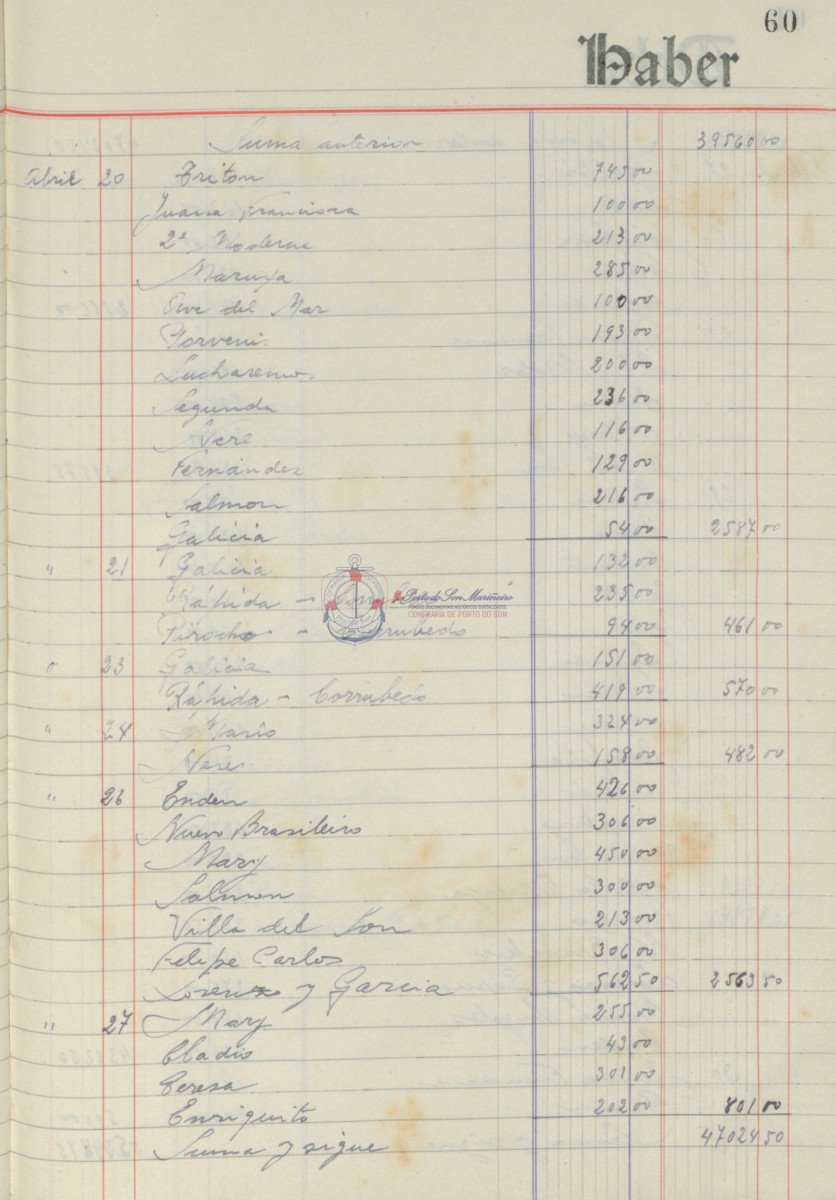 60
Haber
Suma anterior 39560 00
Abril 20 Triton 745 00
Juana Francisca 100 00
2ª Moderna 213 00
Maruxa 285 00
Ave del Mar 100 00
Porvenir 193 00
Lucharemos 200 00
Segunda 236 00
Nere 116 00
Fernández 129 00
Salmon 216 00
Galicia 54 00 2587 00
" 21 Galicia 132 00
Ráhida - Corrubedo 235 00
Porto do Son Mariñeiro
CONFRARIA DE PORTO DO SON
Pirocho - Corrubedo 94 00 461 00
" 23 Galicia 151 00
Ráhida - Corrubedo 419 00 570 00
" 24 Mario 324 00
Neres 158 00 482 00
" 26 Enden 426 00
Nuevo Brasileiro 306 00
Mary 450 00
Salmon 300 00
Villa del Son 213 00
Felipe Carlos 306 00
Lorenzo y Garcia 562 50 2563 50
" 27 Mary 255 00
Cladio 43 00
Teresa 301 00
Enriquito 202 00 801 00
Suma y sigue 47024 50